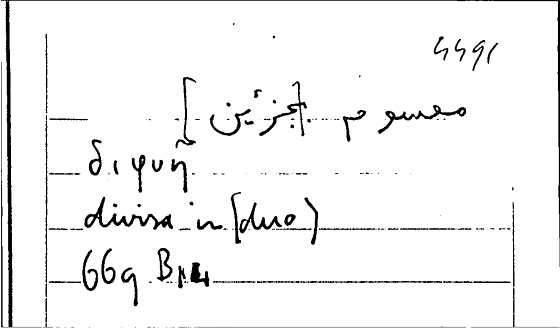 مقسوم [بجزئين]
διφυῆ
divisa in (duo)
669 B14